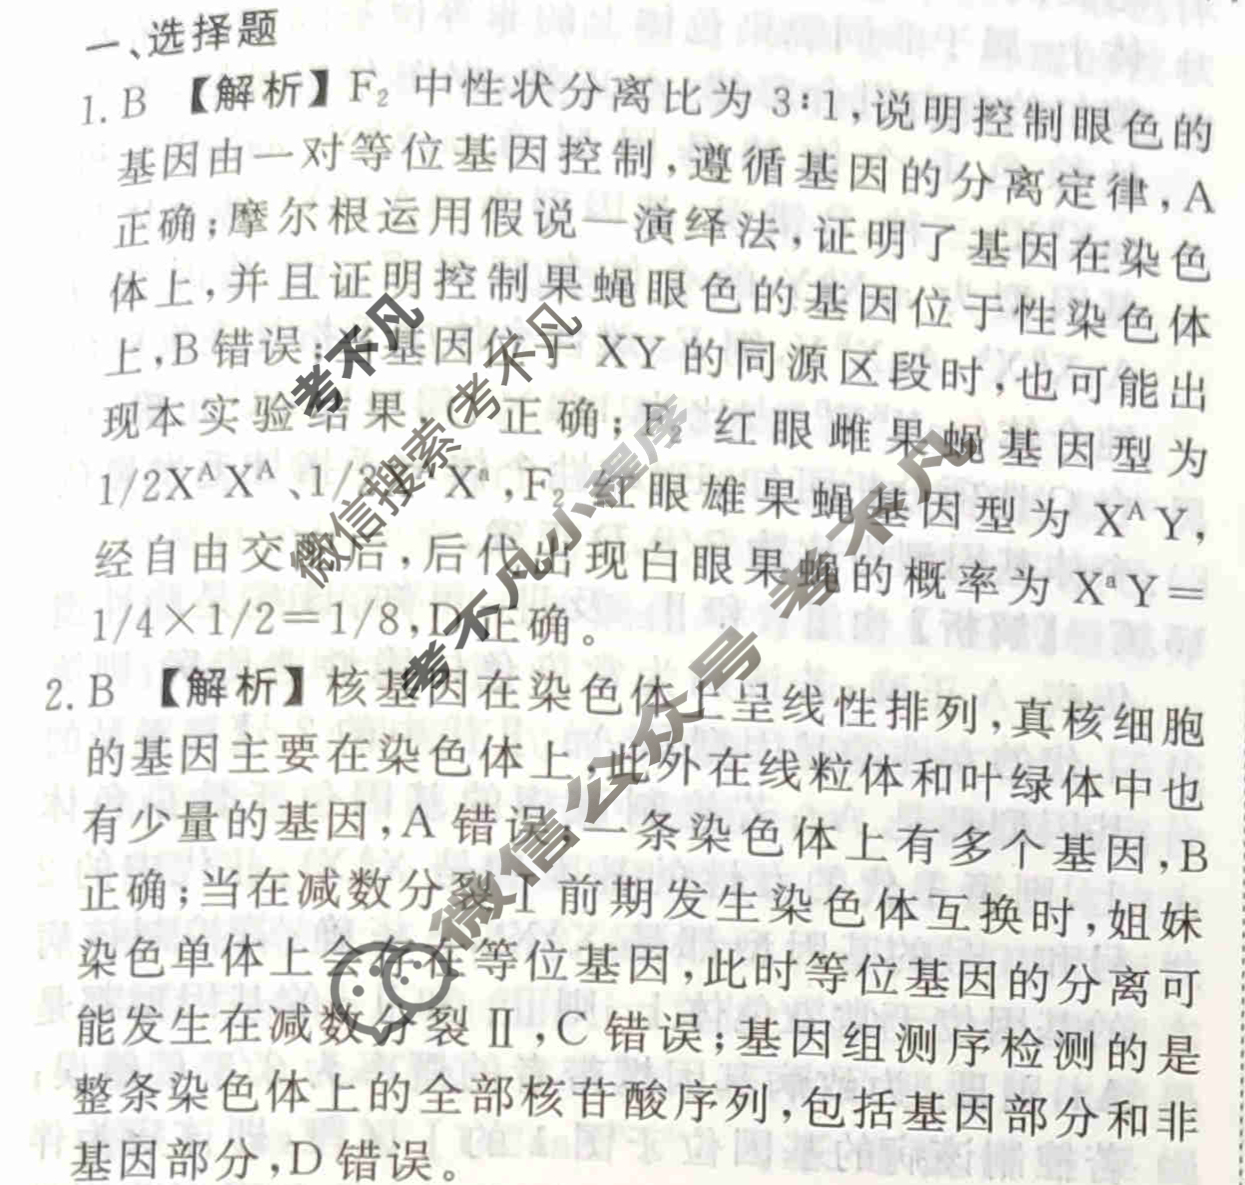 一、选择题
1. B 【解析】F₂ 中性状分离比为 3∶1，说明控制眼色的
基因由一对等位基因控制，遵循基因的分离定律，A
正确；摩尔根运用假说—演绎法，证明了基因在染色
体上，并且证明控制果蝇眼色的基因位于性染色体
上，B 错误；当基因位于 XY 的同源区段时，也可能出
现本实验结果，C 正确；F₂ 红眼雌果蝇基因型为
1/2XᴬXᴬ、1/2XᴬXᵃ，F₂ 红眼雄果蝇基因型为 XᴬY，
经自由交配后，后代出现白眼果蝇的概率为 XᵃY＝
1/4×1/2＝1/8，D 正确。
2. B 【解析】核基因在染色体上呈线性排列，真核细胞
的基因主要在染色体上，此外在线粒体和叶绿体中也
有少量的基因，A 错误；一条染色体上有多个基因，B
正确；当在减数分裂Ⅰ前期发生染色体互换时，姐妹
染色单体上会存在等位基因，此时等位基因的分离可
能发生在减数分裂Ⅱ，C 错误；基因组测序检测的是
整条染色体上的全部核苷酸序列，包括基因部分和非
基因部分，D 错误。
考不凡
微信搜索 考不凡
考不凡小屋库
微信公众号 考不凡